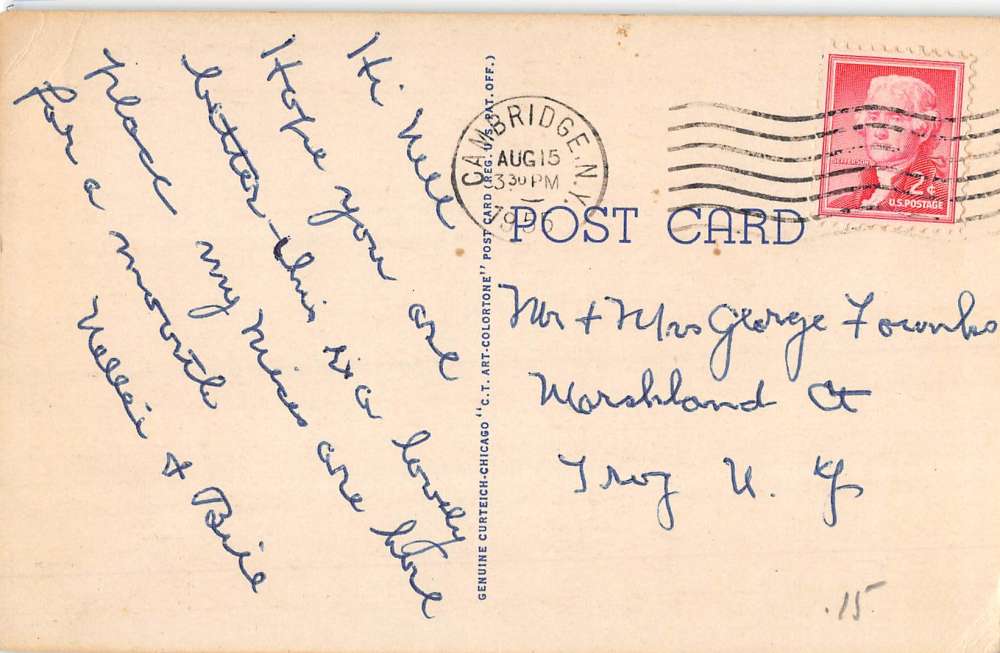 Hi Nell
Hope you are
better - this is a lovely
place my Nices are here
for a month
Nellie & Bill
GENUINE CURTEICH-CHICAGO "C.T. ART-COLORTONE" POST CARD (REG. U.S. PAT. OFF.)
CAMBRIDGE, N.Y.
AUG 15
3 30 PM
1956
JEFFERSON
2¢
U.S. POSTAGE
POST CARD
Mr & Mrs George
Marshland Ct
Troy N. Y
.15